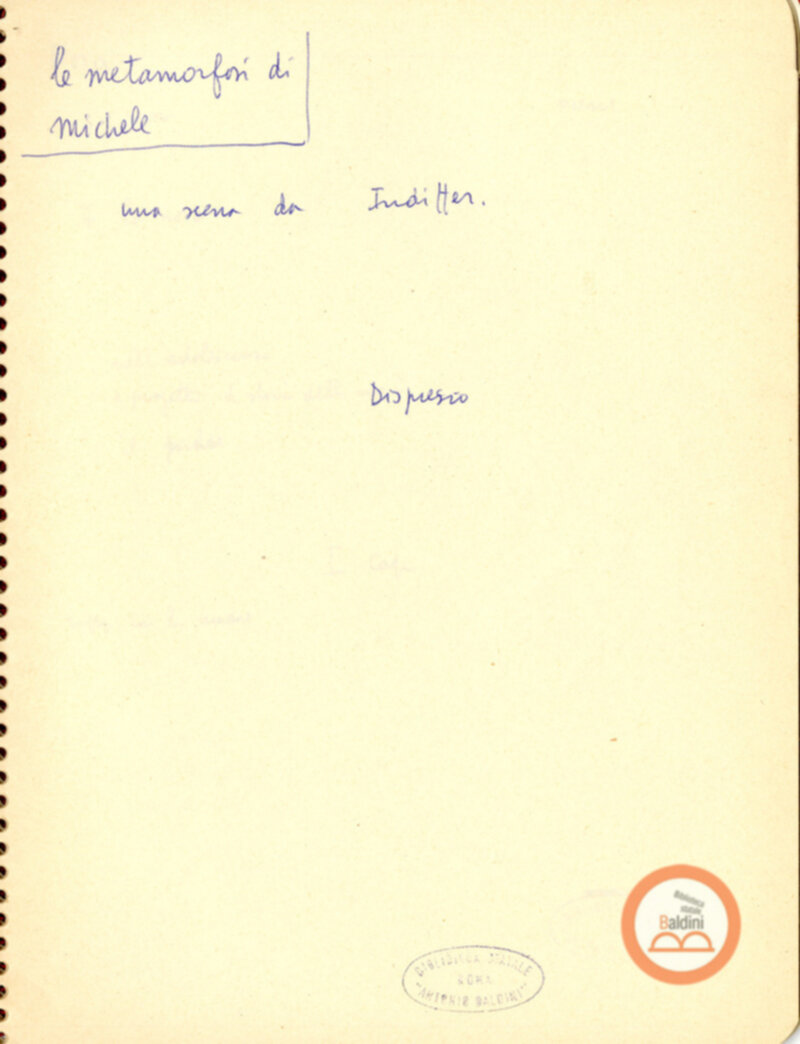 le metamorfosi di
Michele
una scena da Indiffer.
Disprezzo
Biblioteca
statale
Baldini
BIBLIOTECA STATALE
ROMA
"ANTONIO BALDINI"